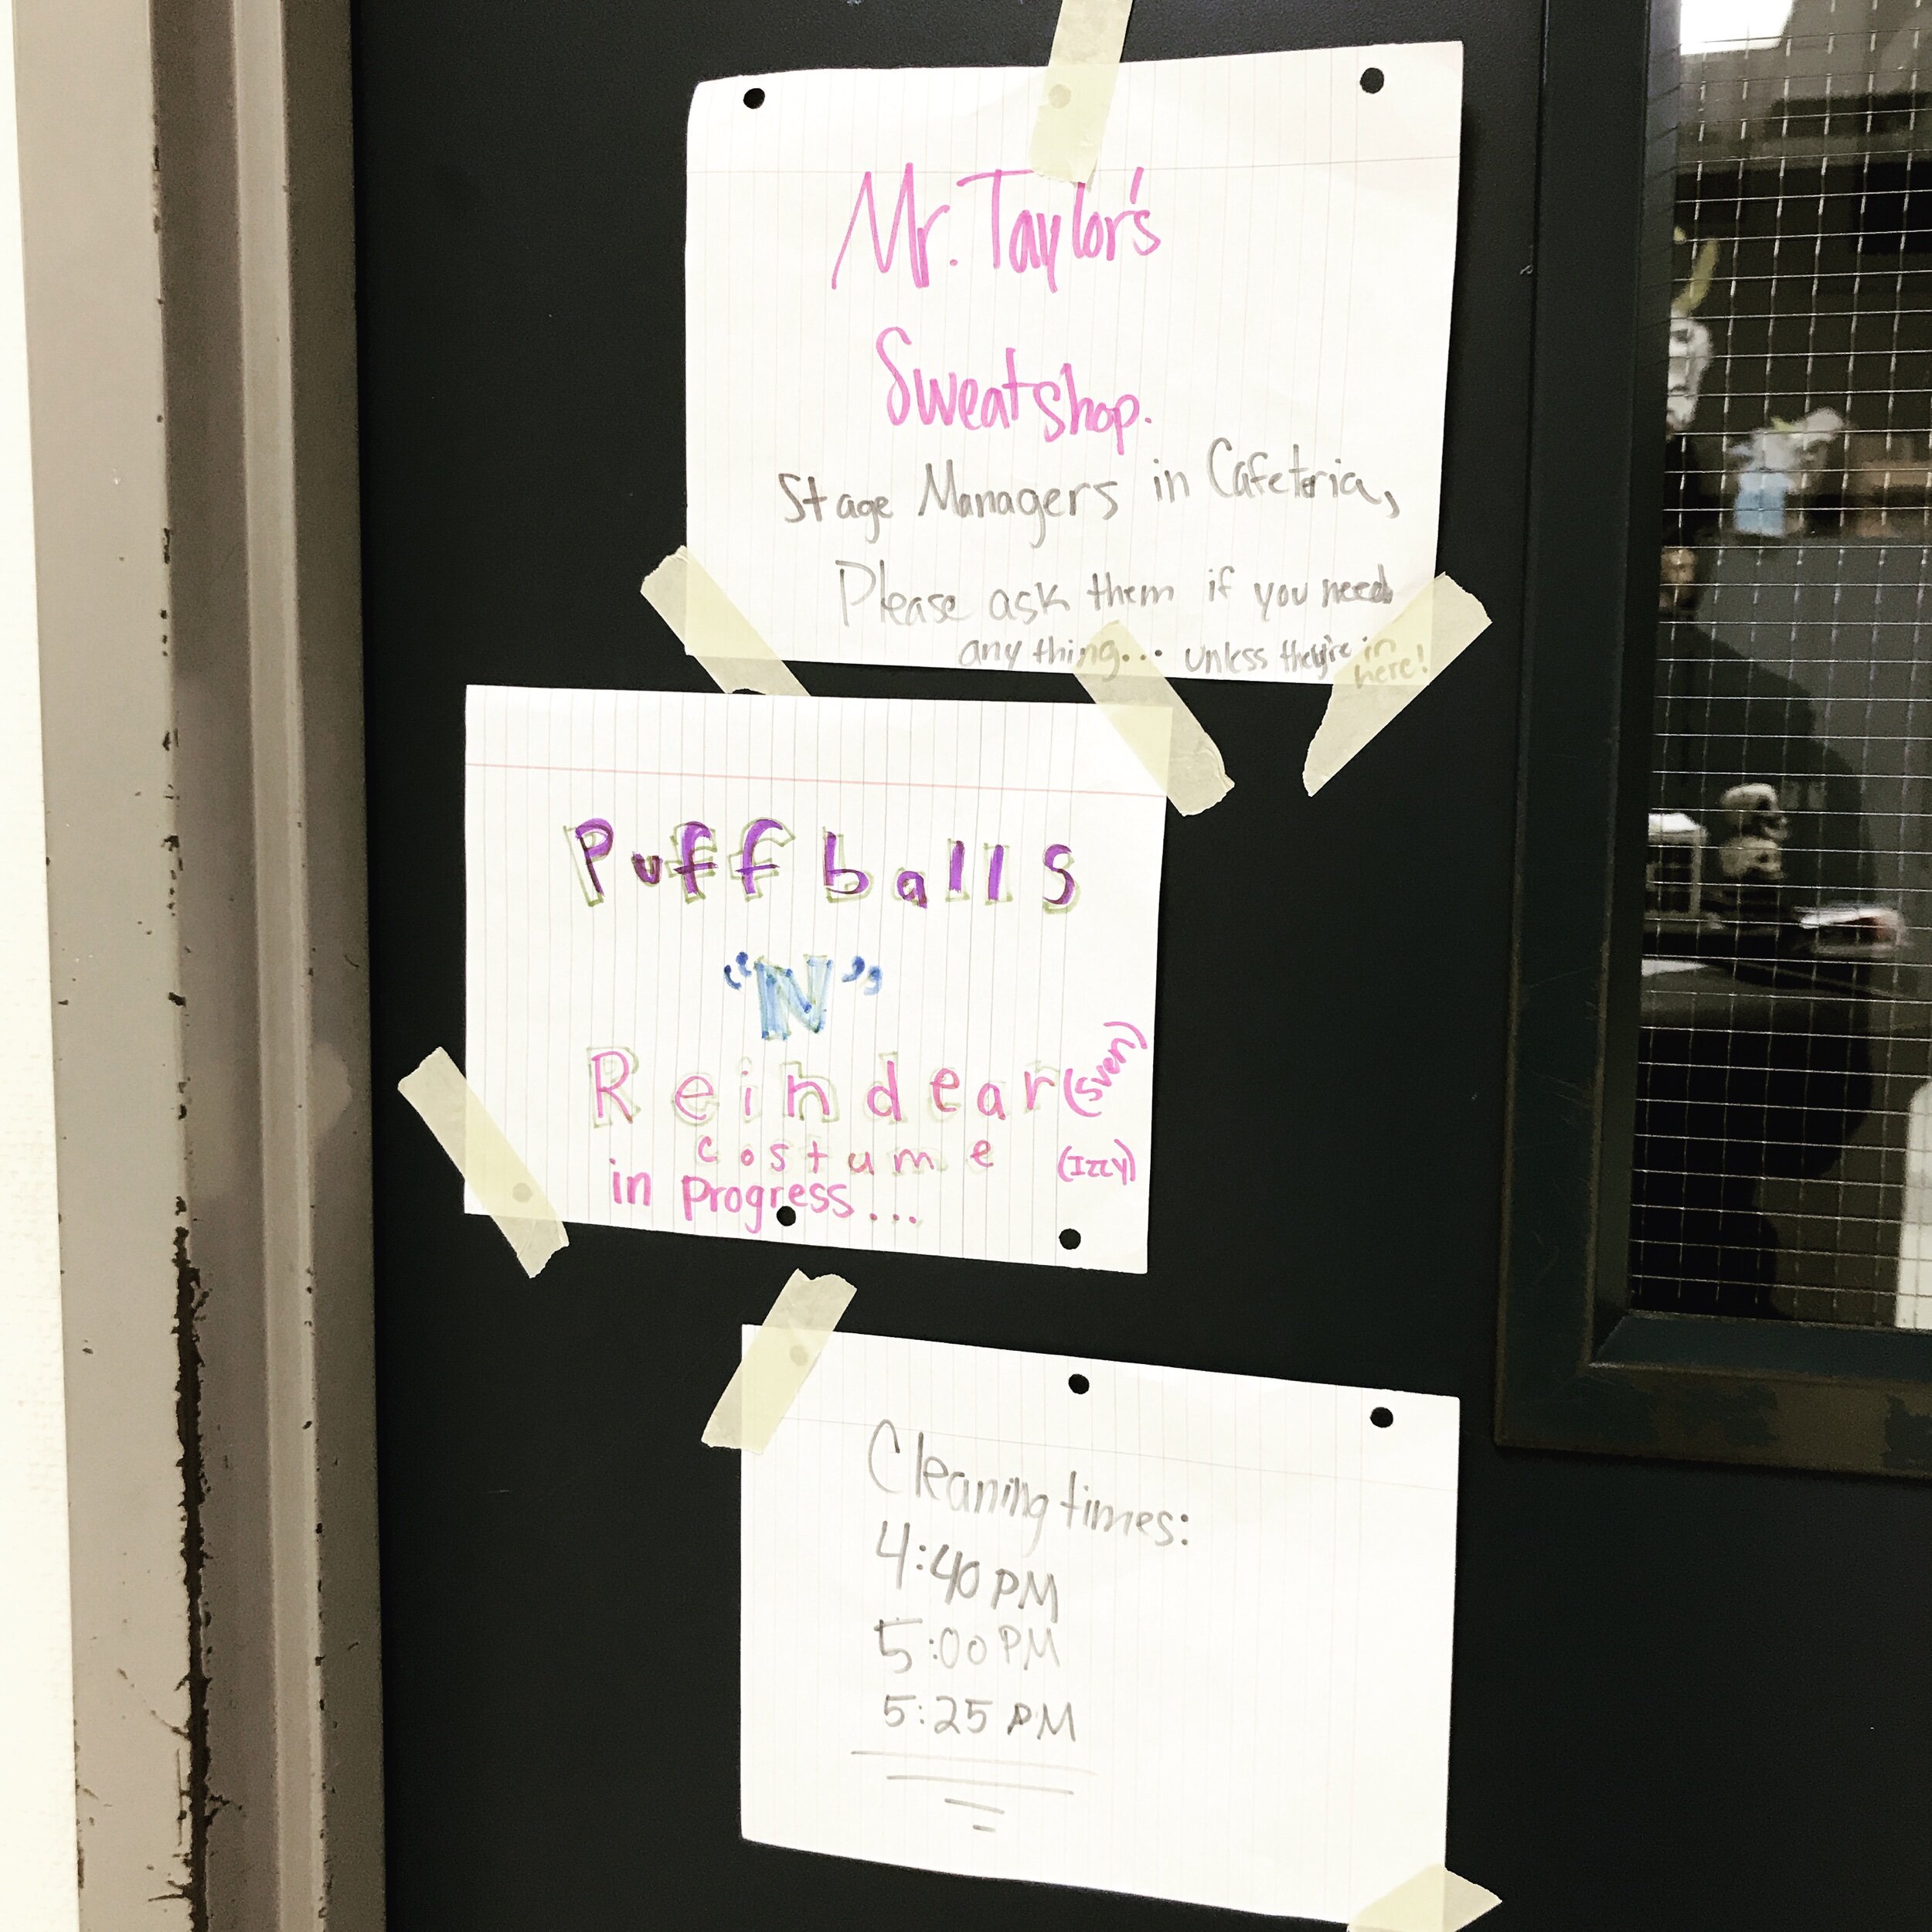 Mr. Taylor's
Sweatshop.
Stage Managers in Cafeteria,
Please ask them if you need
any thing... unless they're in
here!
Puffballs
"N"
Reindear (Sven)
costume (Izzy)
in progress...
Cleaning times:
4:40 PM
5:00 PM
5:25 PM